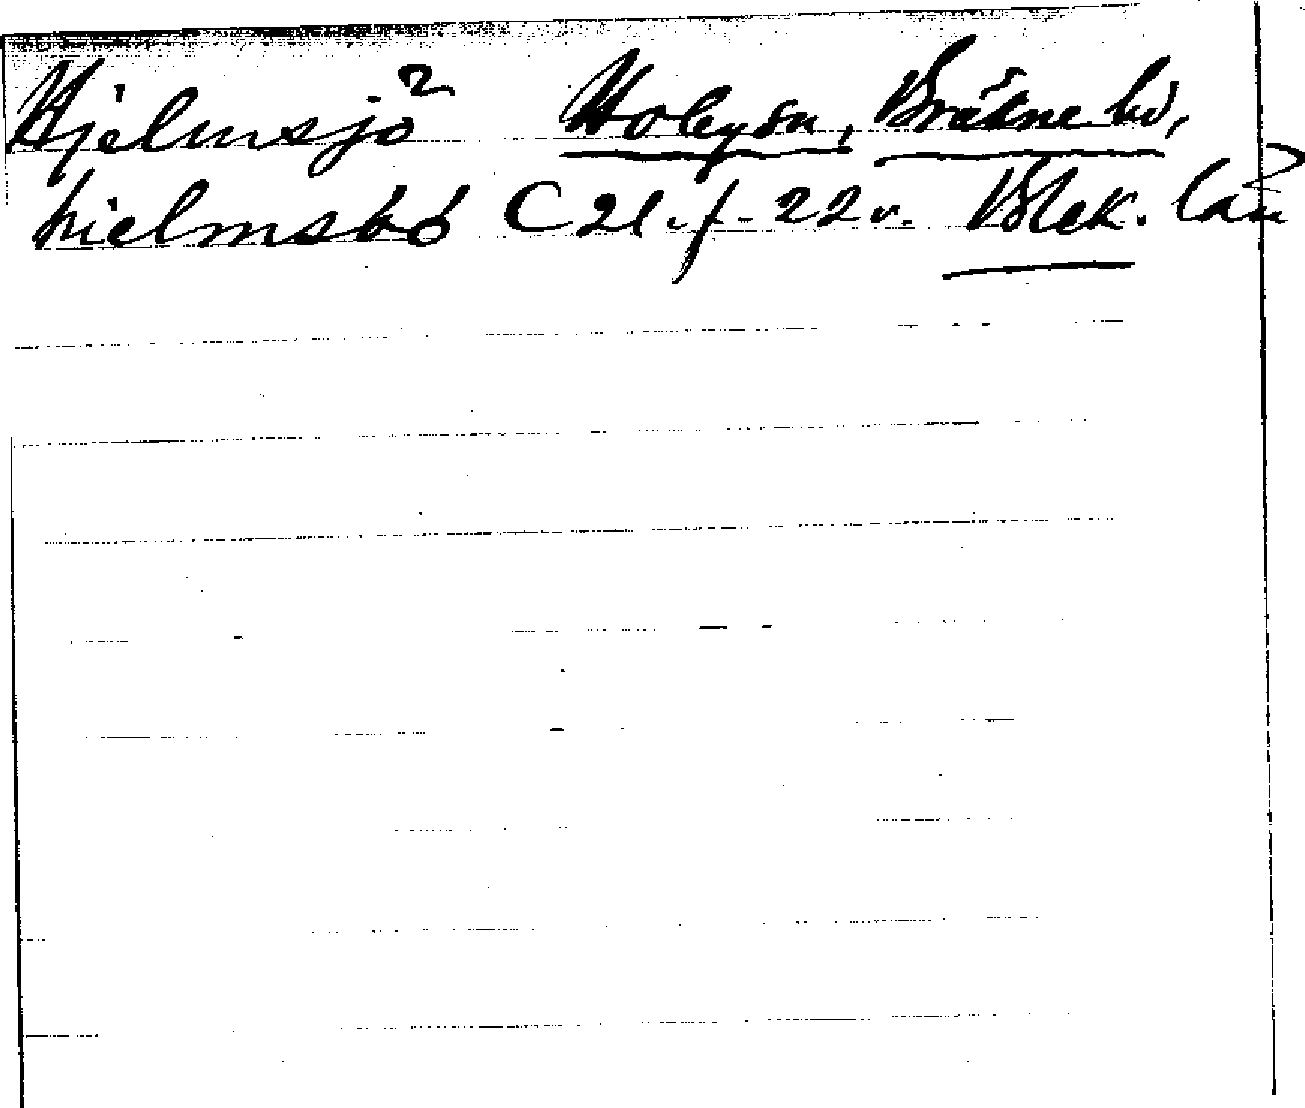 Hjelmsjö Hobysn, Bräkne hd,
hielmsbö C 21. f - 22 v. Blek. län